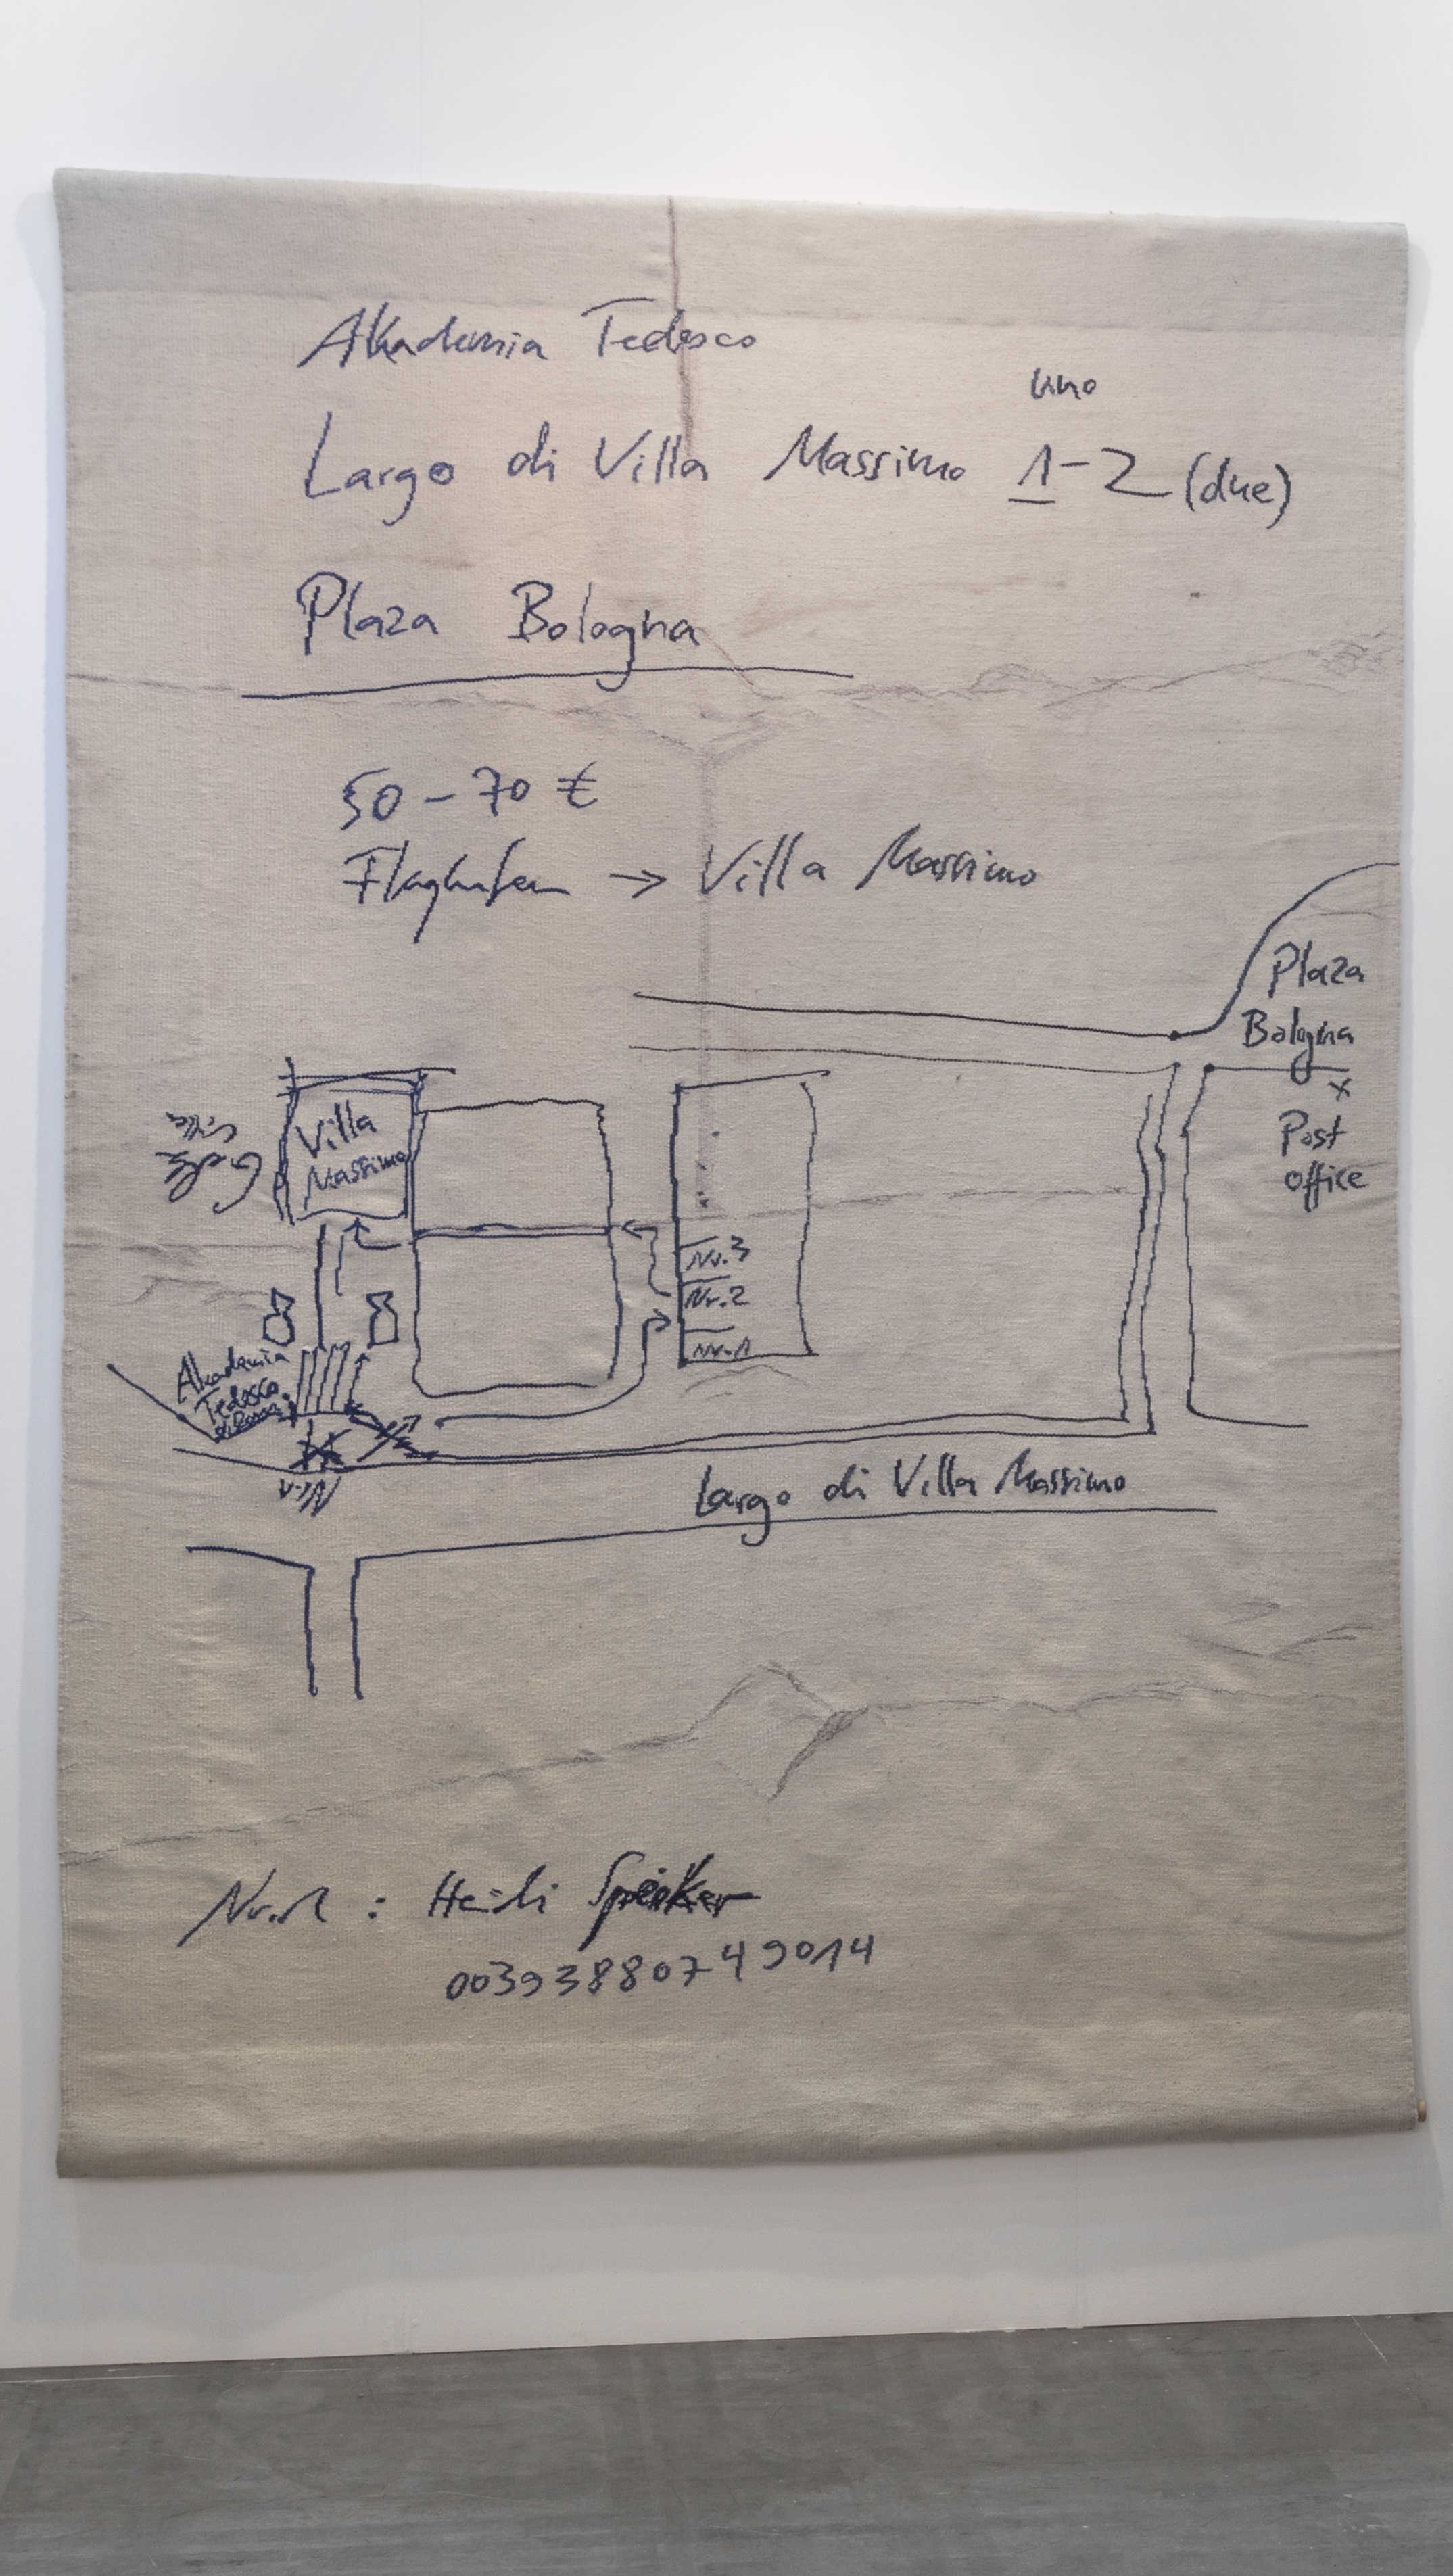 Akademia Tedesco
uno
Largo di Villa Massimo 1-2 (due)
Plaza Bologna
50 - 70 €
Flughafen → Villa Massimo
Plaza
Bologna
x
Post
office
Villa
Massimo
Nr.3
Nr.2
Nr.1
Akademia
Tedesco
Nr.1
Largo di Villa Massimo
Nr.2 : Heidi Speiker
00393880749014